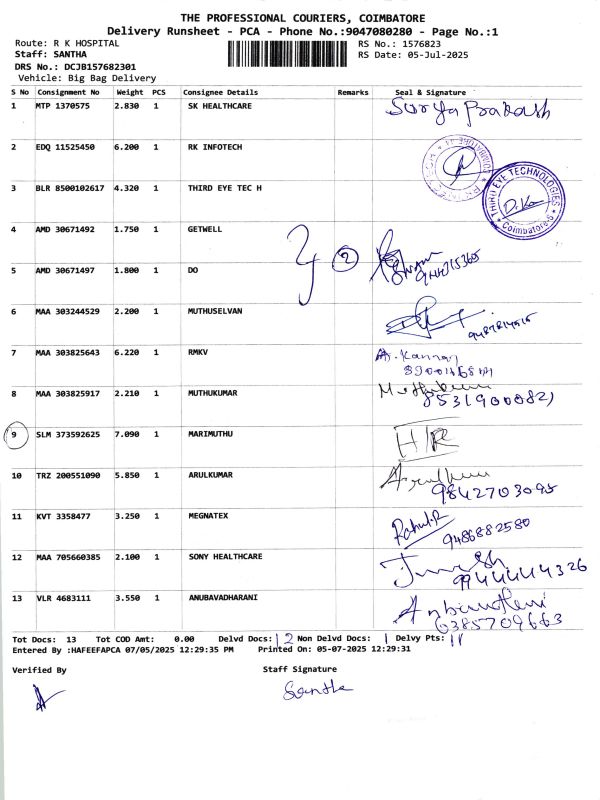 THE PROFESSIONAL COURIERS, COIMBATORE
Delivery Runsheet - PCA - Phone No.:9047080280 - Page No.:1
Route: R K HOSPITAL
RS No.: 1576823
Staff: SANTHA
RS Date: 05-Jul-2025
DRS No.: DCJB157682301
Vehicle: Big Bag Delivery
S No Consignment No Weight PCS Consignee Details Remarks Seal & Signature
1 MTP 1370575 2.830 1 SK HEALTHCARE Surya Prakash
2 EDQ 11525450 6.200 1 RK INFOTECH
3 BLR 8500102617 4.320 1 THIRD EYE TEC H
THIRD EYE TECHNOLOGIES
Coimbatore-5
4 AMD 30671492 1.750 1 GETWELL
2
5 AMD 30671497 1.800 1 DO
6 MAA 303244529 2.200 1 MUTHUSELVAN
7 MAA 303825643 6.220 1 RMKV A. Kannan
8 MAA 303825917 2.210 1 MUTHUKUMAR
8531900082)
9 SLM 373592625 7.090 1 MARIMUTHU H/R
10 TRZ 200551090 5.850 1 ARULKUMAR Arulkumar
9842703095
11 KVT 3358477 3.250 1 MEGNATEX Rahul.R
9486882580
12 MAA 705660385 2.100 1 SONY HEALTHCARE
9944444326
13 VLR 4683111 3.550 1 ANUBAVADHARANI
6385709663
Tot Docs: 13 Tot COD Amt: 0.00 Delvd Docs: 12 Non Delvd Docs: 1 Delvy Pts: 11
Entered By :HAFEEFAPCA 07/05/2025 12:29:35 PM Printed On: 05-07-2025 12:29:31
Verified By
Staff Signature
Santha